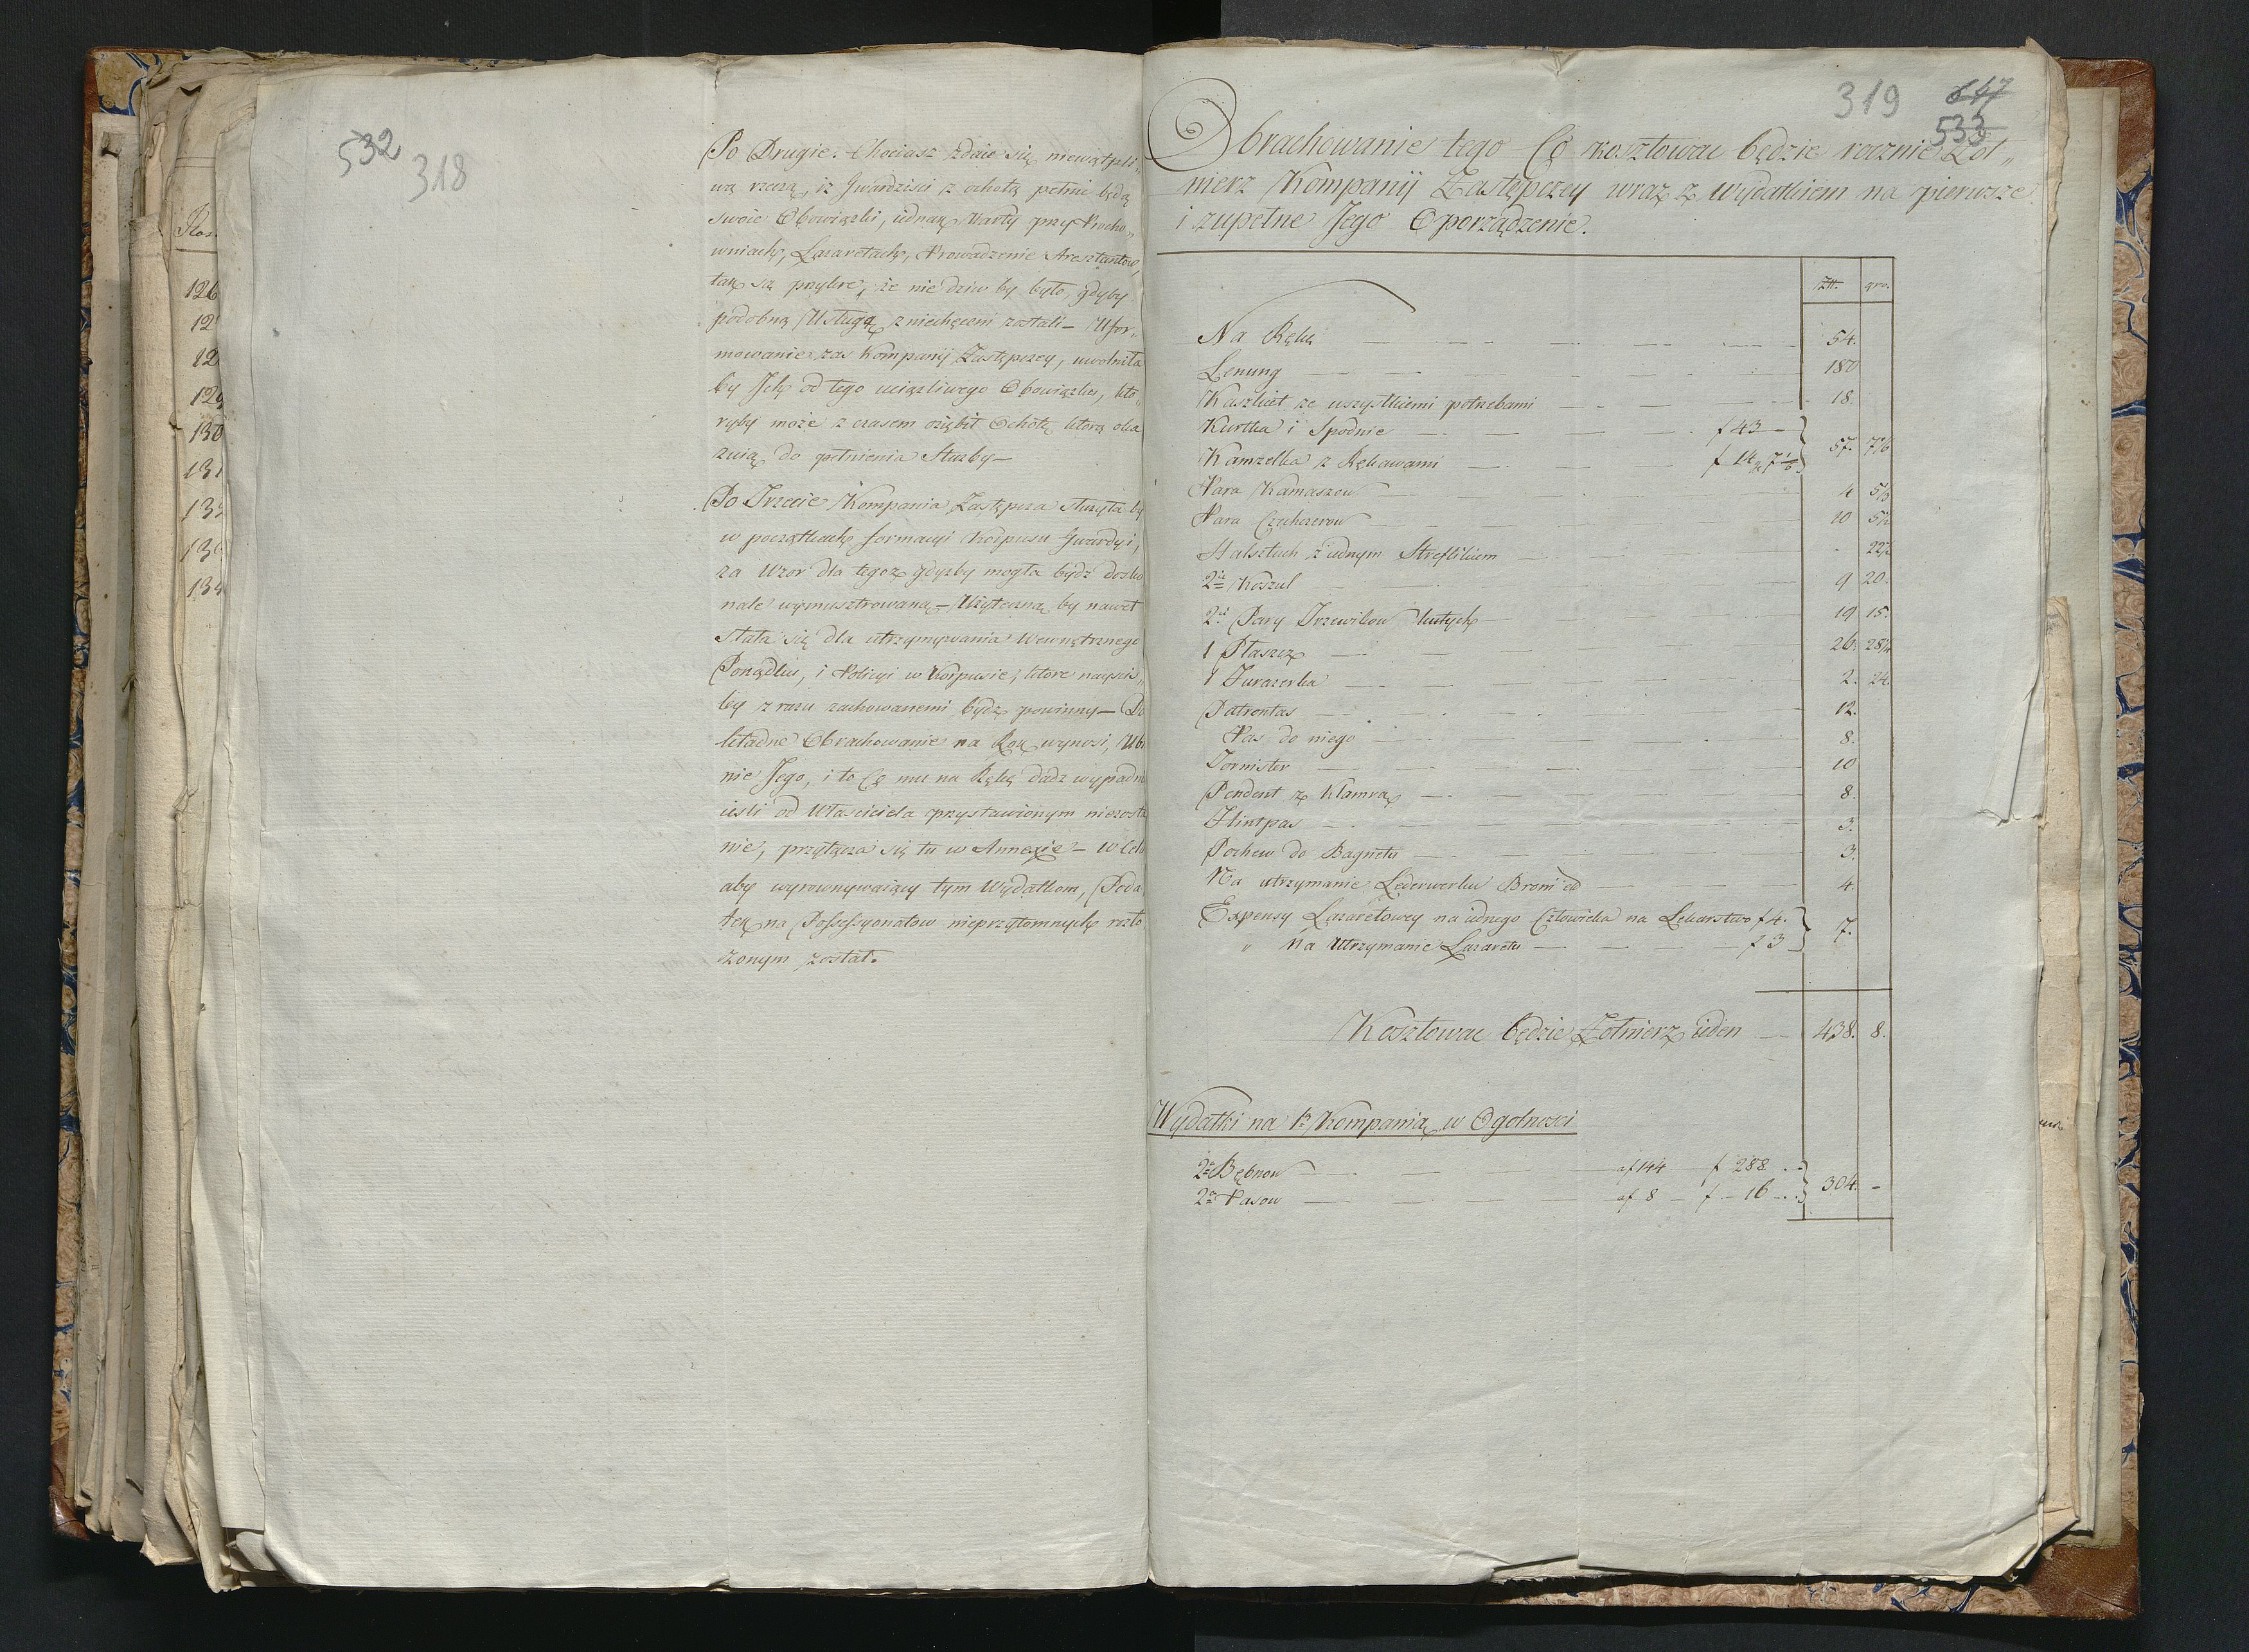 532
318
Po Drugie. Chociasz zdaie się niewątpli„
wą rzeczą, iż Gwardzisci z ochotą pełnic będą
swoie Obowiązki, iednak Warty przy Procho„
wniach, Lazaretach, Prowadzenie Aresztantow,
tak są przykre, że nie dziw by było, gdyby
podobną Usługą zniechęceni zostali – Ufor„
mowanie zas Kompanij Zastępczey, uwolniła
by Jch od tego uciązliwego Obowiązku, kto„
ryby może z czasem oziębił Ochotę ktorą oka
zuią do pełnienia Służby –
Po Trzecie Kompania Zastępcza służyła by
w początkach formacyi Korpusu Gwardyi,
za Wzor dla tegoz gdyzby mogła bydź dosko
nale wymusztrowaną – Użyteczną by nawet
stała się dla utrzymywania Wewnętrznego
Porządku, i Policyi w Korpusie, ktore nayscis„
ley zrazu zachowanemi bydz powinny – Do
kładne Obrachowanie na Rok wynosi, Ubra
nie Jego, i to Co mu na Rękę dadz wypadnie
iesli od Własciciela przystawionym niezosta
nie, przyłącza się tu w Annexie – w Celu
aby wyrownywaiący tym Wydatkom, Poda
tek na Possessyonatow nieprzytomnych rozło
żonym został.
Ros
126
12
12
129
130
131
132
13
134
319
647
533
Obrachowanie tego Co kosztowac będzie rocznie Żoł„
nierz Kompanij Zastępczey wraz z wydatkiem na pierwsze
i zupełne Jego Oporządzenie.
Złł. gro.
Na Rękę 54.
Lenung 180
Kaszkiet ze wszystkiemi potrzebami 18.
Kurtka i Spodnie f 43 –
Kamzelka z Rękawami f 14 g 7½ } 57. 7½
Para Kamaszow 4 5/3
Para Czechczerow 10 5½
Halsztuch z iednym Streflikiem - 22½
2ie Koszul 9 20.
2ie Pary Trzewikow kutych 19 15.
1 Płaszcz 26. 28¼
1 Furazerka 2. 24.
Patrontas 12.
Pas do niego 8.
Tornister 10
Pendent z Klamrą 8.
Flintpas 3.
Pochew do Bagnetu 3.
Na utrzymanie Lederwerku Broni etc 4.
Expensy Lazaretowey na iednego Człowieka na Lekarstwo f 4.
„ Na Utrzymanie Lazaretu f 3 } 7.
Kosztowac będzie Żołnierz ieden 438. 8.
Wydatki na 1ą Kompanią w Ogolnosci
2a Bębnow af 144 f 288
2a Pasow af 8 – f – 16 } 304. –